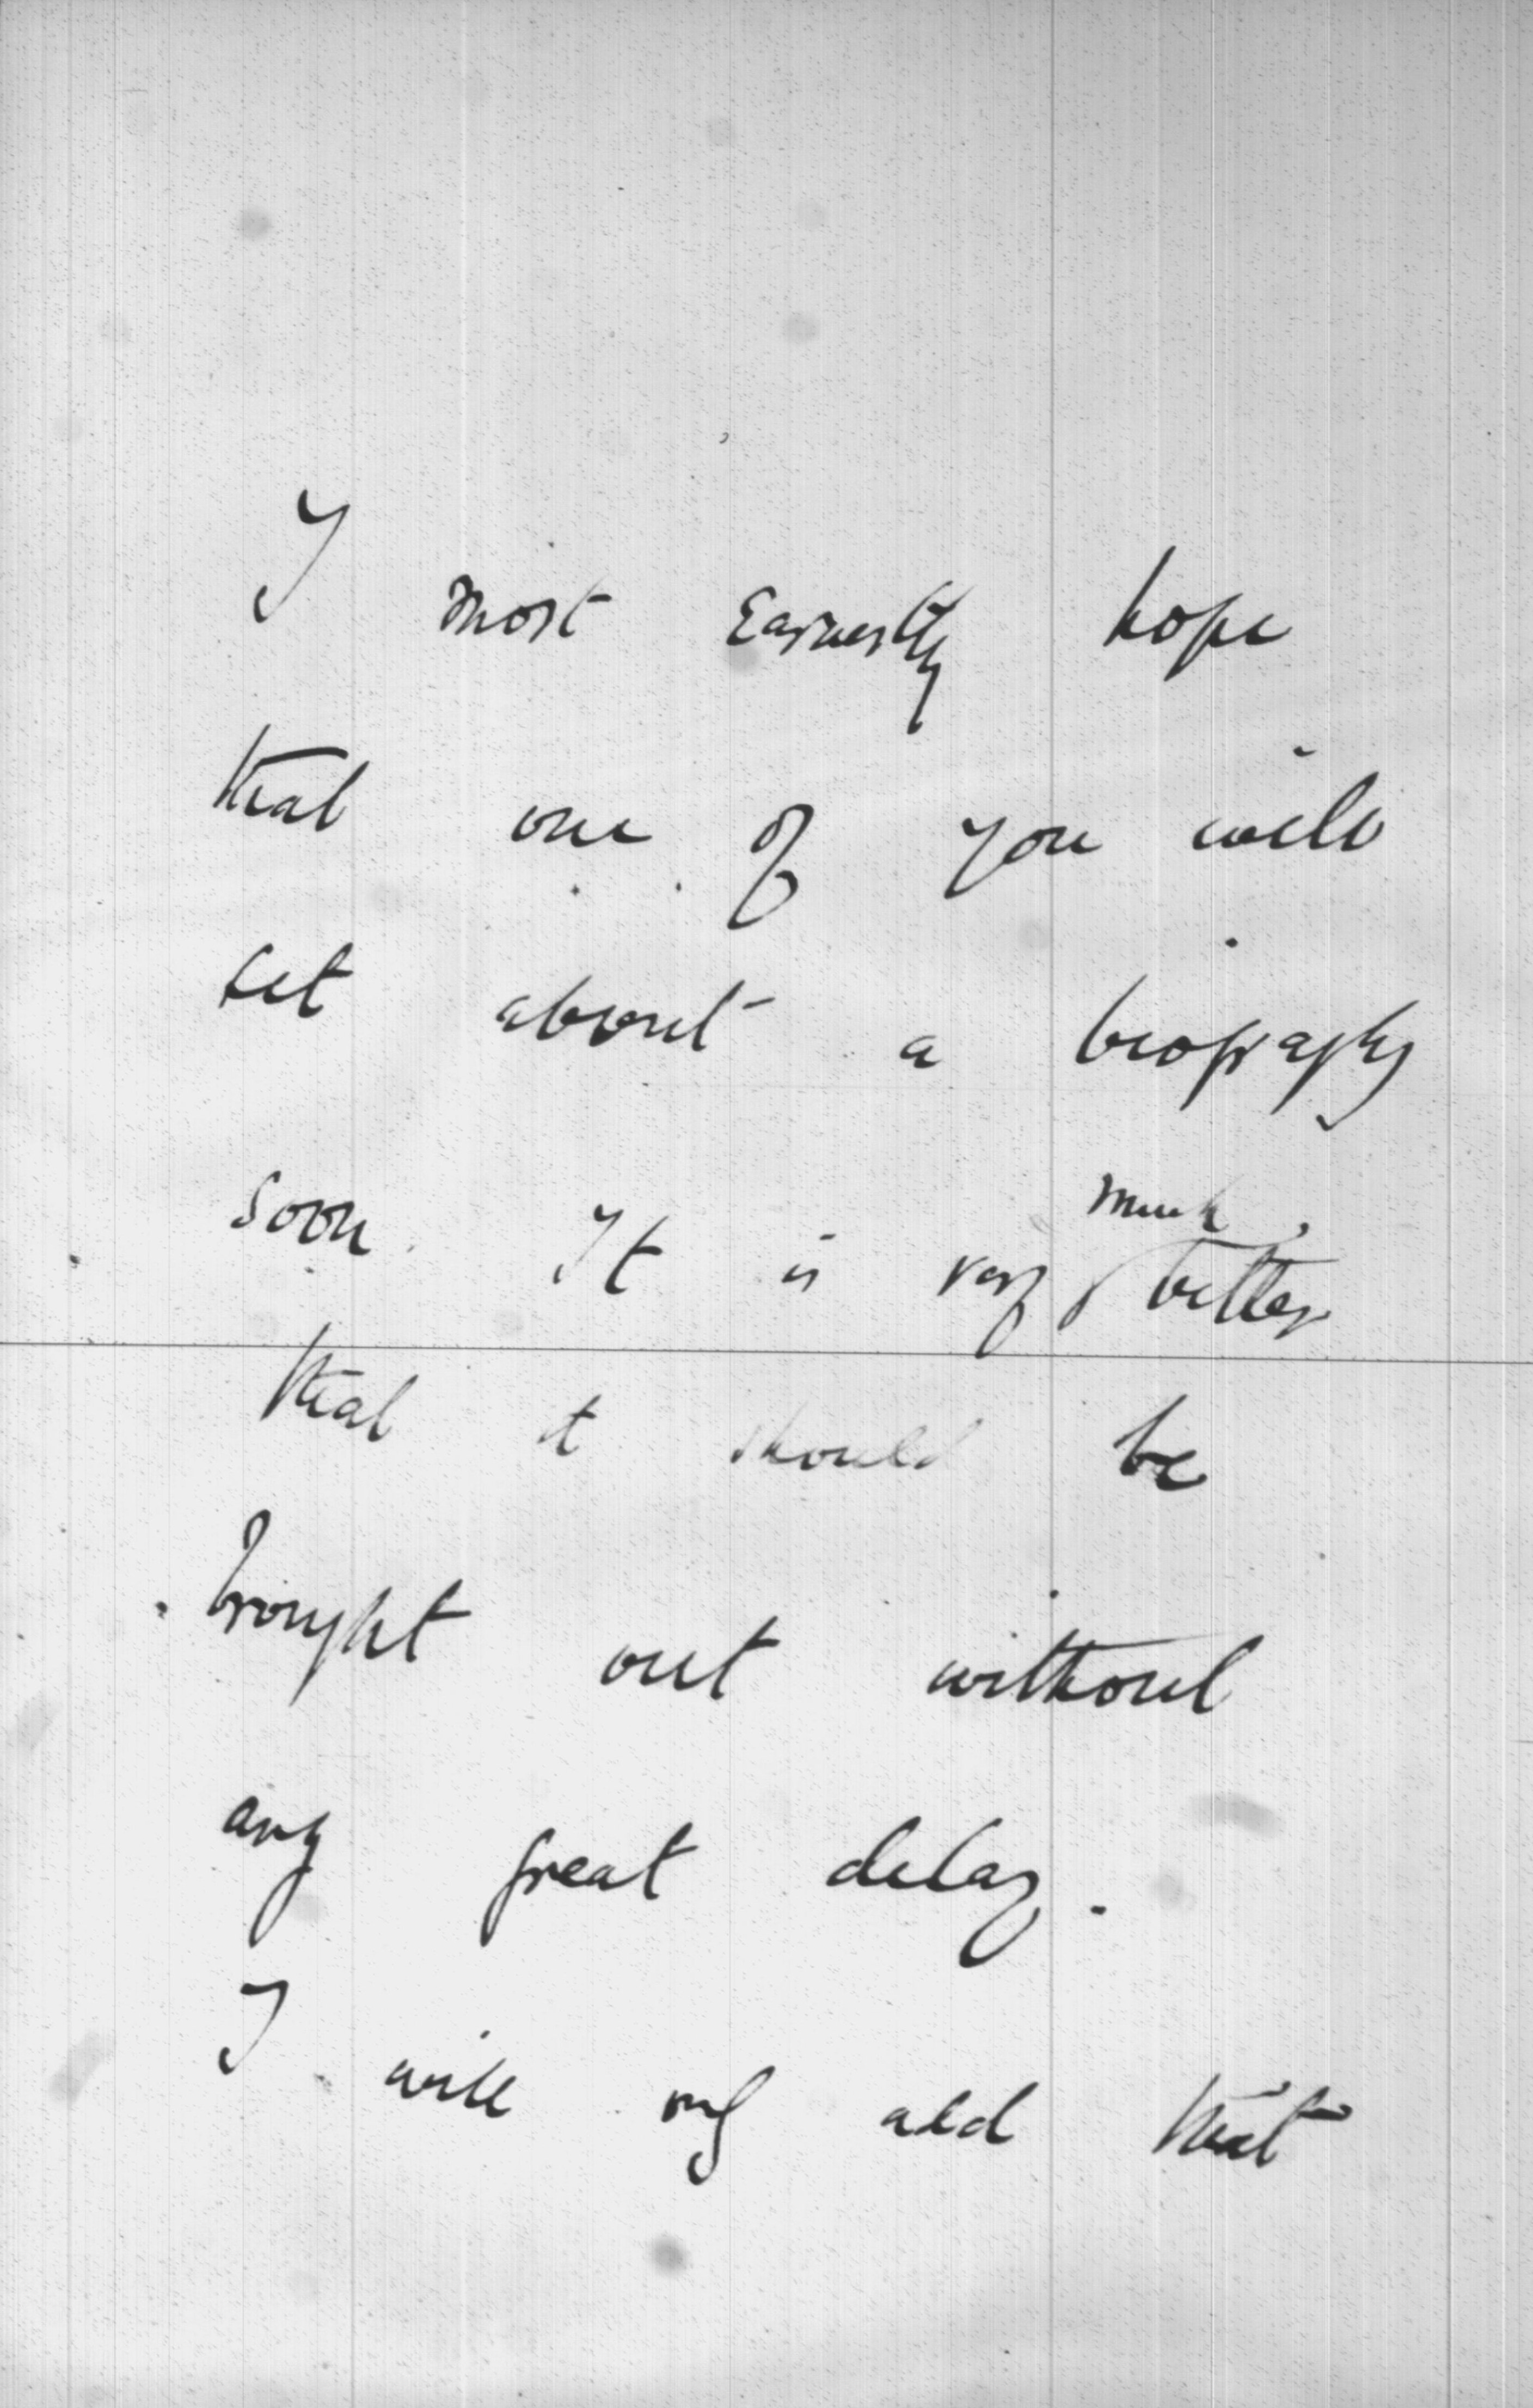 I most earnestly hope
that one of you will
set about a biography
soon. It is very much better
that it should be
brought out without
any great delay.
I will only add that